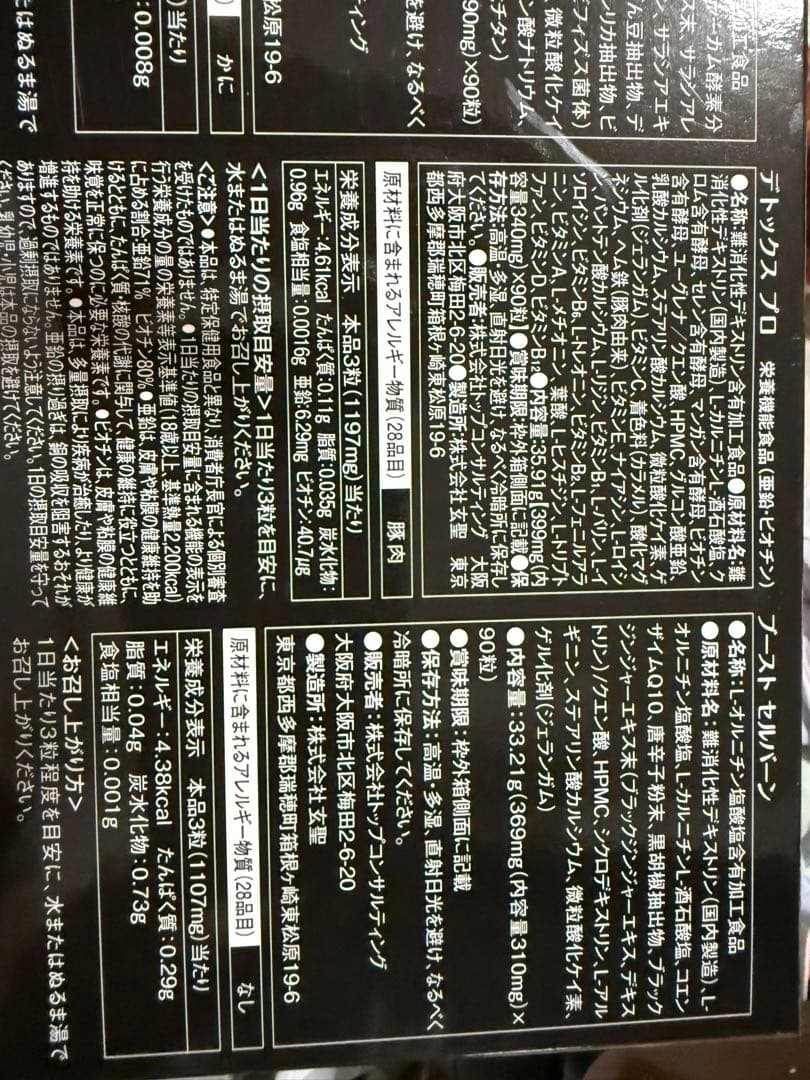 加工食品
ーガム酵素分
ん豆抽出物、デ
リカ抽出物、ビ
フィズス菌体)
微粒酸化ケイ
ン酸ナトリウム、
チタン)
90mg)×90粒)
を避け、なるべく
ティング
松原19-6
かに
)当たり
:0.008g
たはぬるま湯で
デトックス プロ 栄養機能食品(亜鉛・ビオチン)
●名称:難消化性デキストリン含有加工食品●原材料名:難
消化性デキストリン(国内製造)、L-カルニチンL-酒石酸塩、ク
ロム含有酵母、セレン含有酵母、マンガン含有酵母、ビオチン
含有酵母、ユーグレナ/クエン酸、HPMC、グルコン酸亜鉛、
乳酸カルシウム、ステアリン酸カルシウム、微粒酸化ケイ素、ゲ
ル化剤(ジェランガム)、ビタミンC、着色料(カラメル)、酸化マグ
ネシウム、ヘム鉄(豚肉由来)、ビタミンE、ナイアシン、L-ロイシ
ン、パントテン酸カルシウム、L-リジン、ビタミンB₁、L-バリン、L-イ
ソロイシン、ビタミンB₆、L-トレオニン、ビタミンB₂、L-フェニルアラ
ニン、ビタミンA、L-メチオニン、葉酸、L-ヒスチジン、L-トリプト
ファン、ビタミンD、ビタミンB₁₂●内容量:35.91g(399mg(内
容量340mg)×90粒)●賞味期限:枠外箱側面に記載●保
存方法:高温・多湿、直射日光を避け、なるべく冷暗所に保存し
てください。●販売者:株式会社トップコンサルティング 大阪
府大阪市北区梅田2-6-20●製造所:株式会社玄聖 東京
都西多摩郡瑞穂町箱根ヶ崎東松原19-6
原材料に含まれるアレルギー物質(28品目) 豚肉
栄養成分表示 本品3粒(1197mg)当たり
エネルギー:4.61kcal たんぱく質:0.11g 脂質:0.035g 炭水化物:
0.96g 食塩相当量:0.0016g 亜鉛:6.29mg ビオチン:40.7μg
<1日当たりの摂取目安量>1日当たり3粒を目安に、
水またはぬるま湯でお召し上がりください。
<ご注意>●本品は、特定保健用食品と異なり、消費者庁長官による個別審査
を受けたものではありません。●1日当たりの摂取目安量に含まれる機能の表示を
行う栄養成分の量の栄養素等表示基準値(18歳以上、基準熱量2,200kcal)
に占める割合:亜鉛71% ビオチン80%●亜鉛は、皮膚や粘膜の健康維持を助
けるとともに、たんぱく質・核酸の代謝に関与して、健康の維持に役立つとともに、
味覚を正常に保つのに必要な栄養素です。●ビオチンは、皮膚や粘膜の健康維
持を助ける栄養素です。●本品は、多量摂取により疾病が治癒したり、より健康が
増進するものではありません。亜鉛の摂り過ぎは、銅の吸収を阻害するおそれが
ありますので、過剰摂取にならないよう注意してください。1日の摂取目安量を守って
ください。乳幼児・小児は本品の摂取を避けてください。
ブースト セルバーン
●名称:L-オルニチン塩酸塩含有加工食品
●原材料名:難消化性デキストリン(国内製造)、L-
オルニチン塩酸塩、L-カルニチンL-酒石酸塩、コエン
ザイムQ10、唐辛子粉末、黒胡椒抽出物、ブラック
ジンジャーエキス末(ブラックジンジャーエキス、デキス
トリン)/クエン酸、HPMC、シクロデキストリン、L-アル
ギニン、ステアリン酸カルシウム、微粒酸化ケイ素、
ゲル化剤(ジェランガム)
●内容量:33.21g(369mg(内容量310mg)×
90粒)
●賞味期限:枠外箱側面に記載
●保存方法:高温・多湿、直射日光を避け、なるべく
冷暗所に保存してください。
●販売者:株式会社トップコンサルティング
大阪府大阪市北区梅田2-6-20
●製造所:株式会社玄聖
東京都西多摩郡瑞穂町箱根ヶ崎東松原19-6
原材料に含まれるアレルギー物質(28品目) なし
栄養成分表示 本品3粒(1107mg)当たり
エネルギー:4.38kcal たんぱく質:0.29g
脂質:0.04g 炭水化物:0.73g
食塩相当量:0.001g
<お召し上がり方>
1日当たり3粒程度を目安に、水またはぬるま湯で
お召し上がりください。